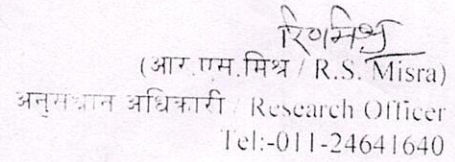 (आर.एस.मिश्र / R.S. Misra)
अनुसंधान अधिकारी / Research Officer
Tel:-011-24641640